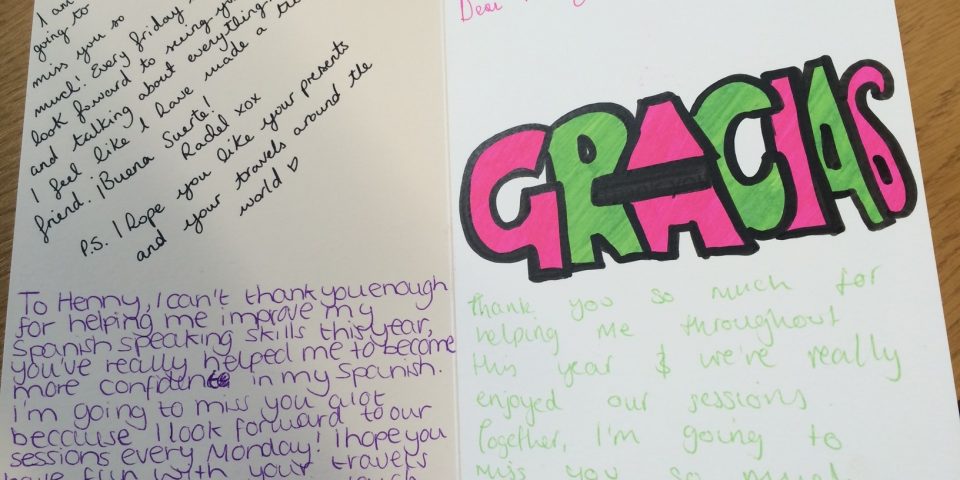 I am
going to
miss you so
much! Every friday I
look forward to seeing you
and talking about everything.
I feel like I have made a true
friend. ¡Buena Suerte!
Radel xox
P.S. I hope you like your presents
and your travels around the
world ♡
To Henny, I can't thank you enough
for helping me improve my
Spanish speaking skills this year,
you've really helped me to become
more confident in my Spanish.
I'm going to miss you a lot
beccause I look forward to our
sessions every Monday! I hope you
have fun with your travels
Dear
GRACIAS
Thank you so much for
helping me throughout
this year & we're really
enjoyed our sessions
together, I'm going to
miss you so much